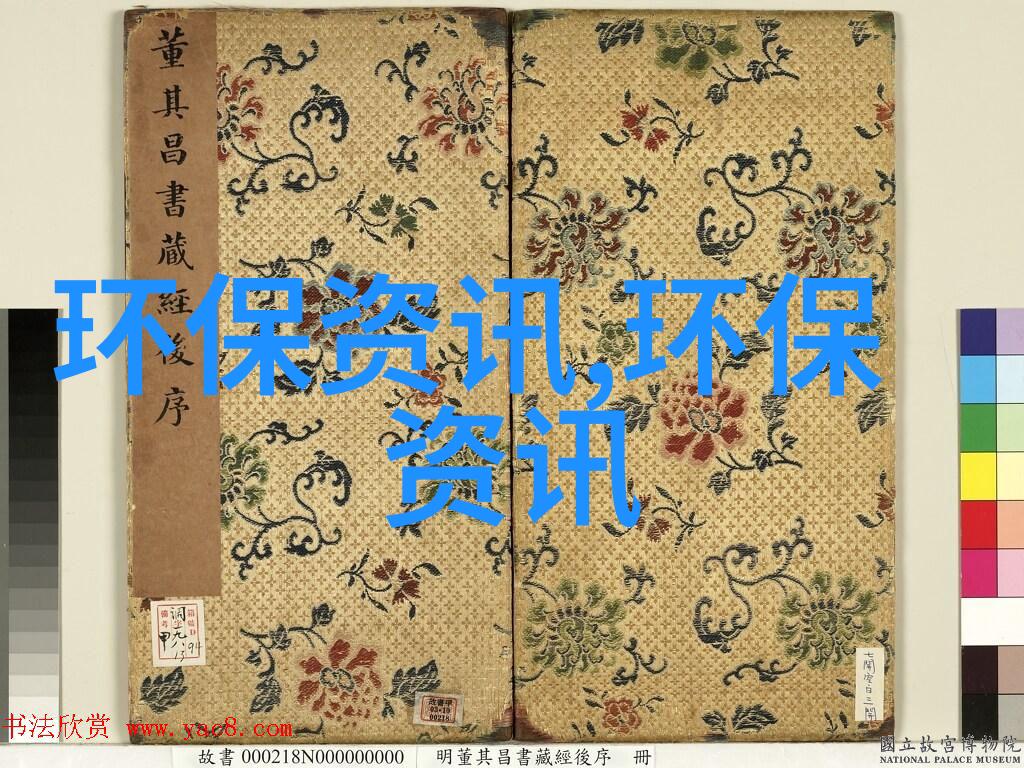 董其昌書藏經後序
环保资讯,环保
资讯
備考
箱號D
甲
94
故書甲
03×10
00218
七開空白三開
书法欣赏 www.yac8.com
故書 000218N000000000
明董其昌書藏經後序 冊
國立故宮博物院
NATIONAL PALACE MUSEUM